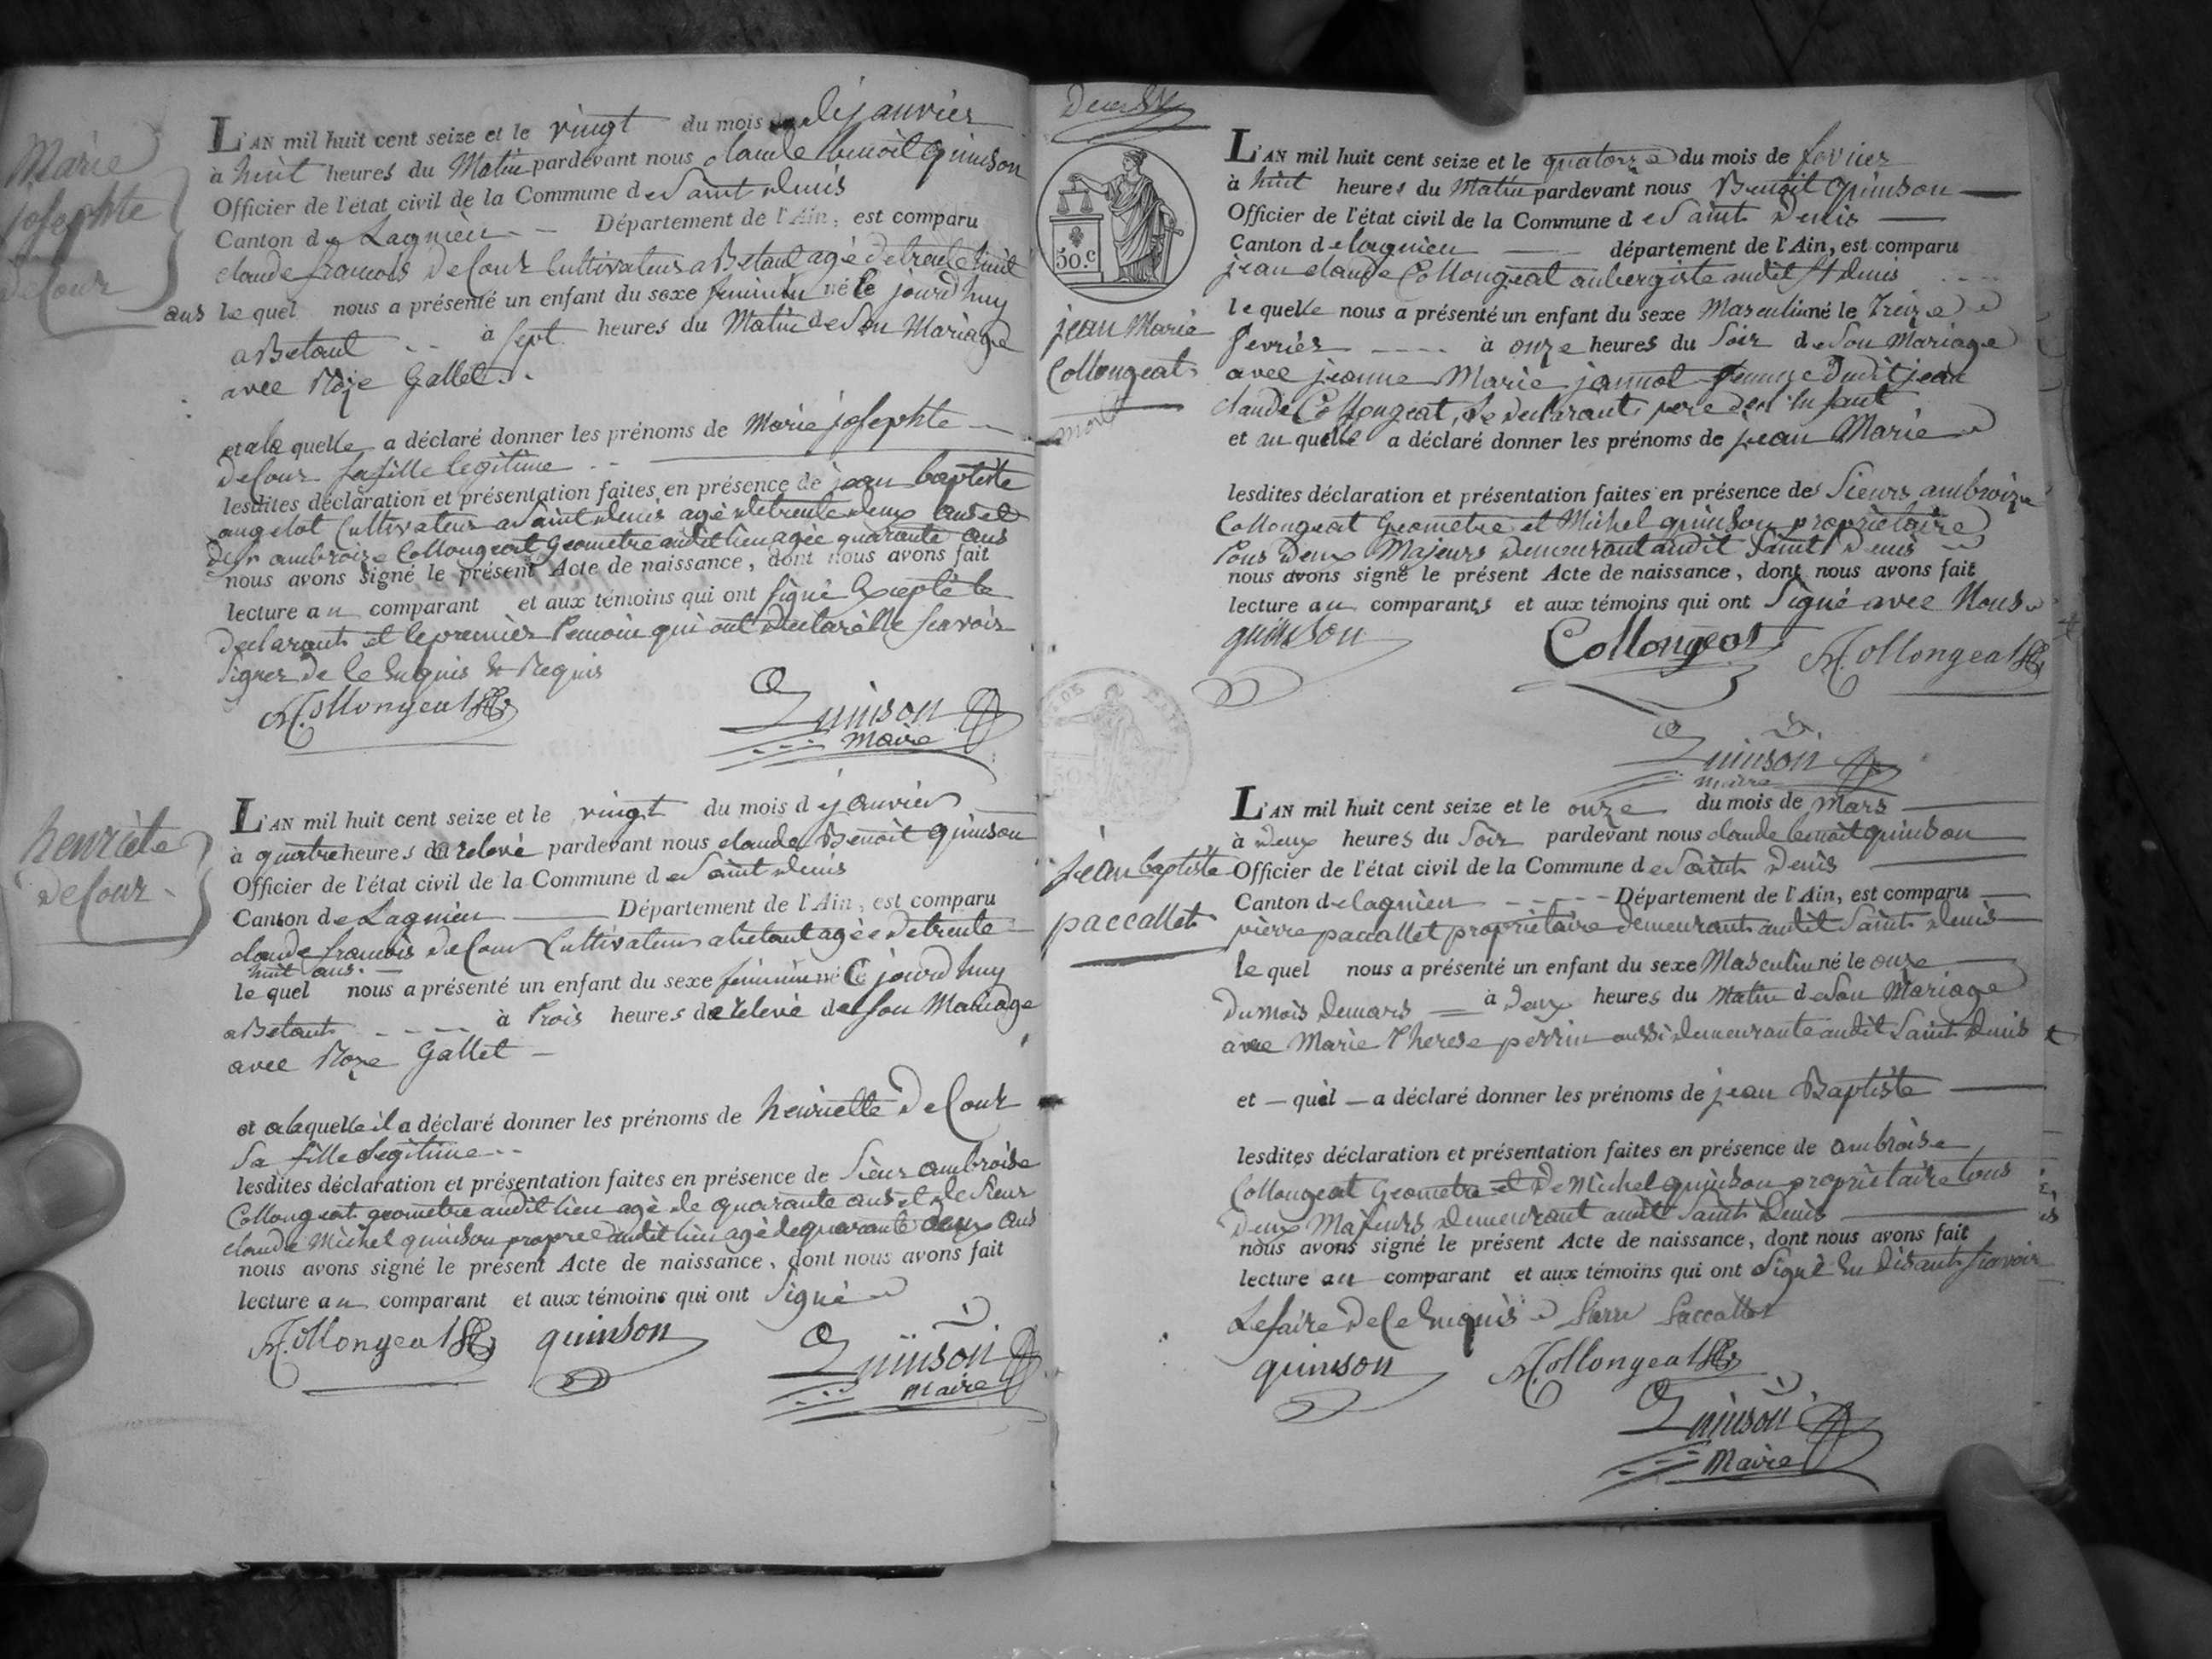 Marie
josephte
deCour
L'AN mil huit cent seize et le vingt du mois de janvier
à huit heures du Matin pardevant nous claude benoit quinson
Officier de l'état civil de la Commune de Saint denis
Canton de Lagnieu Département de l'Ain, est comparu
claude francois deCour Cultivateur a Betant agé de trente huit
ans le quel nous a présenté un enfant du sexe feminin né le jourd huy
a Betant à sept heures du Matin de Son Mariage
avec Roze Gallet
et a la quelle a déclaré donner les prénoms de Marie josephte
deCour sa fille legitime
lesdites déclaration et présentation faites en présence de jean baptiste
angelot Cultivateur a Saint denis agé de trente deux ans et
de Sr ambroize Collongeat Geometre audit lieu agée quarante ans
nous avons signé le présent Acte de naissance, dont nous avons fait
lecture au comparant et aux témoins qui ont signé Excepté le
declarant et le premier temoin qui ont declaré ne scavoir
signer de Ce Enquis & Requis
Collongeat
Quinson
Maire
henriete
deCour
L'AN mil huit cent seize et le vingt du mois de janvier
à quatre heures de relevé pardevant nous claude Benoit quinson
Officier de l'état civil de la Commune de Saint denis
Canton de Lagnieu Département de l'Ain, est comparu
claude francois deCour Cultivateur a betant agée de trente
huit ans.
le quel nous a présenté un enfant du sexe feminin né Ce jourd huy
a Betant à trois heures de relevé de son Mariage
avec Roze Gallet
et a laquelle il a déclaré donner les prénoms de henriette deCour
Sa fille legitime
lesdites déclaration et présentation faites en présence de Sieur ambroise
Collongeat geometre audit lieu agé de quarante ans et de Sieur
claude Michel quinson propre audit lieu agé de quarante deux ans
nous avons signé le présent Acte de naissance, dont nous avons fait
lecture au comparant et aux témoins qui ont Signé
Collongeat quinson
Quinson
Maire
50.c
jean Marie
Collongeat
mort
L'AN mil huit cent seize et le quatorze du mois de fevrier
à huit heures du Matin pardevant nous Benoit Quinson
Officier de l'état civil de la Commune de Saint Denis
Canton de lagnieu département de l'Ain, est comparu
jean claude Collongeat aubergiste audit St denis
le quelle nous a présenté un enfant du sexe Masculin né le Treize
fevrier à onze heures du Soir de Son Mariage
avec jeanne Marie jannot femme dudit jean
claude Collongeat, le declarant pere de l'Enfant
et au quelle a déclaré donner les prénoms de jean Marie
lesdites déclaration et présentation faites en présence des Sieurs ambroize
Collongeat Geometre et Michel quinson proprietaire
tous deux Majeurs demeurant audit Saint Denis
nous avons signé le présent Acte de naissance, dont nous avons fait
lecture au comparants et aux témoins qui ont Signé avec Nous
quinson Collongeat Collongeat
Quinson
maire
jean baptiste
paccallet
L'AN mil huit cent seize et le onze du mois de Mars
à deux heures du Soir pardevant nous claude benoit quinson
Officier de l'état civil de la Commune de Saint Denis
Canton de lagnieu Département de l'Ain, est comparu
pierre paccallet proprietaire demeurant audit Saint denis
le quel nous a présenté un enfant du sexe Masculin né le onze
du mois de mars à deux heures du Matin de Son Mariage
avec Marie Therese perrin aussi demeurante audit Saint denis
et quel a déclaré donner les prénoms de jean Baptiste
lesdites déclaration et présentation faites en présence de ambroise
Collongeat Geometre et de Michel quinson proprietaire tous
deux Majeurs demeurant audit Saint Denis
nous avons signé le présent Acte de naissance, dont nous avons fait
lecture au comparant et aux témoins qui ont Signé En disant scavoir
Le faire de Ce Enquis Pierre Paccallet
quinson Collongeat
Quinson
Maire